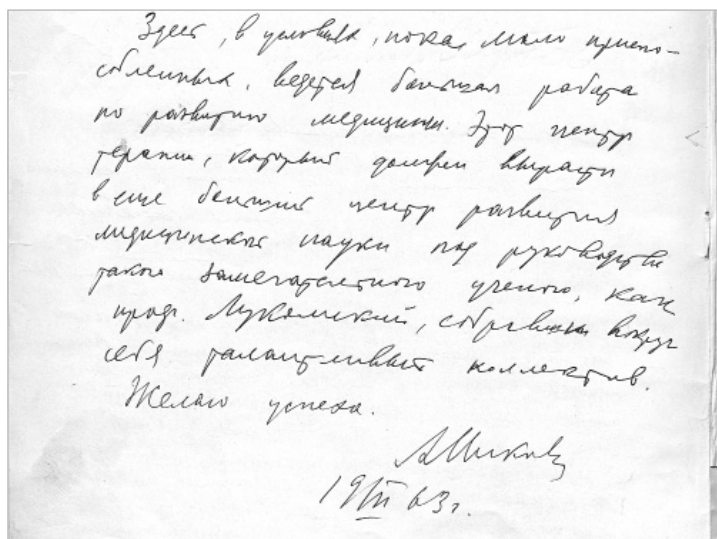 Здесь, в условиях, пока, мало приспо-
собленных, ведется большая работа
по развитию медицины. Этот центр
терапии, который должен вырасти
в еще больший центр развития
медицинской науки под руководством
такого замечательного ученого, как
проф. Лукомский, собравший вокруг
себя талантливый коллектив.
Желаю успеха.
19 63 г.